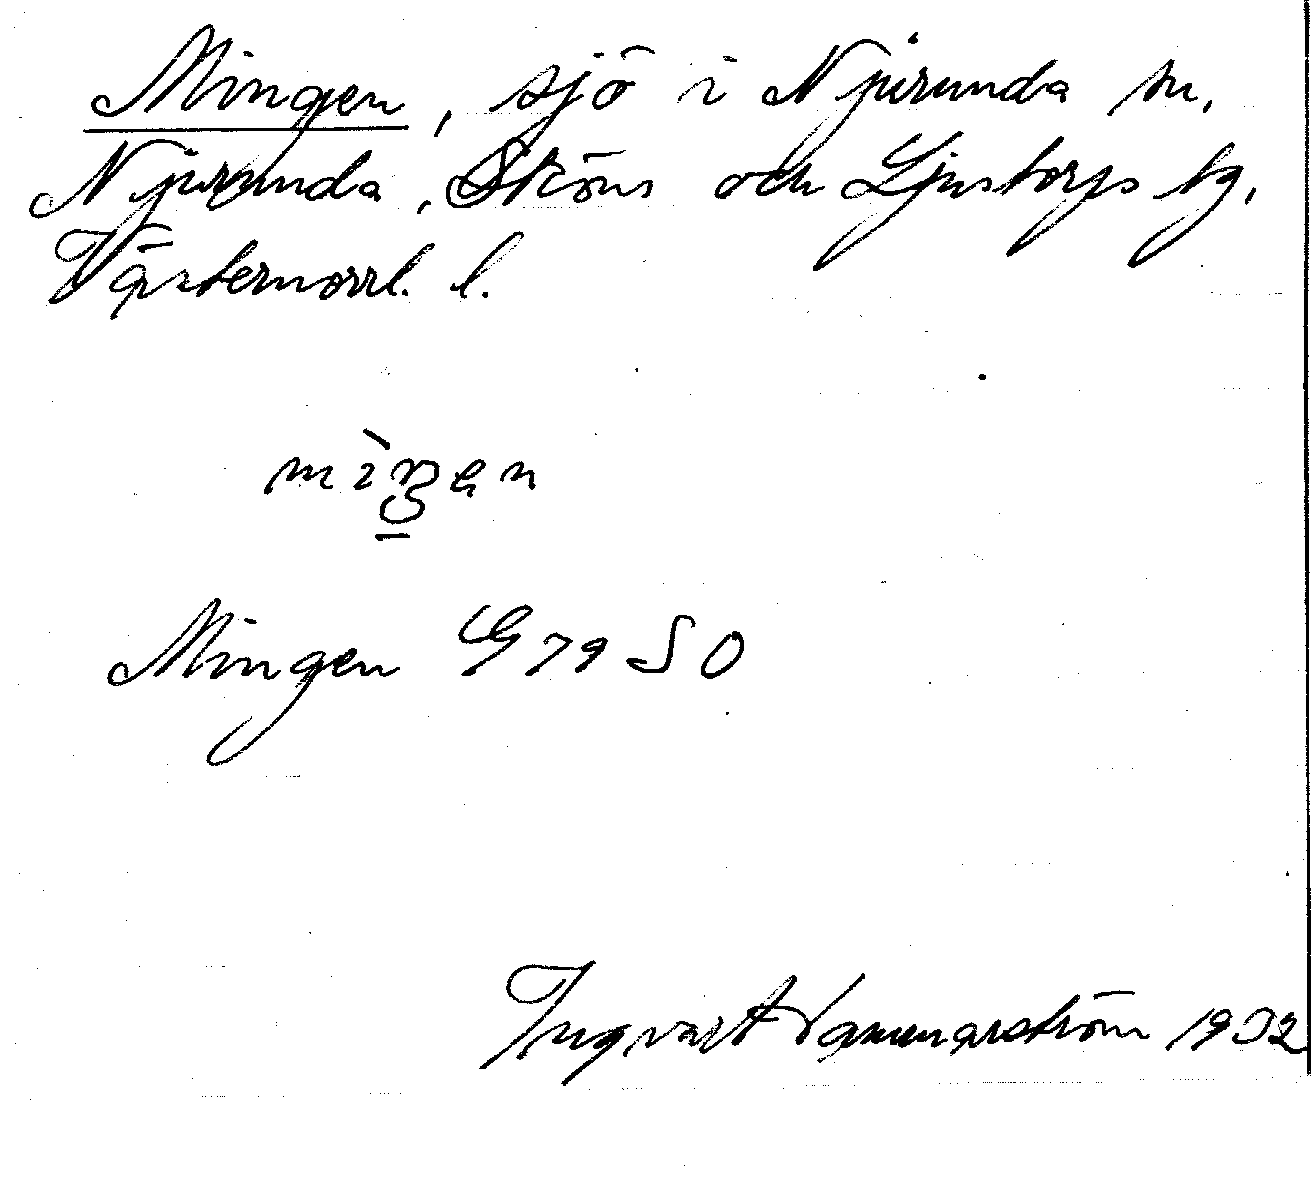 Mingen, sjö i Njurunda sn,
Njurunda, Sköns och Ljustorps tg,
Västernorrl. l.
Mingen G 79 SO
Ingvart 1932